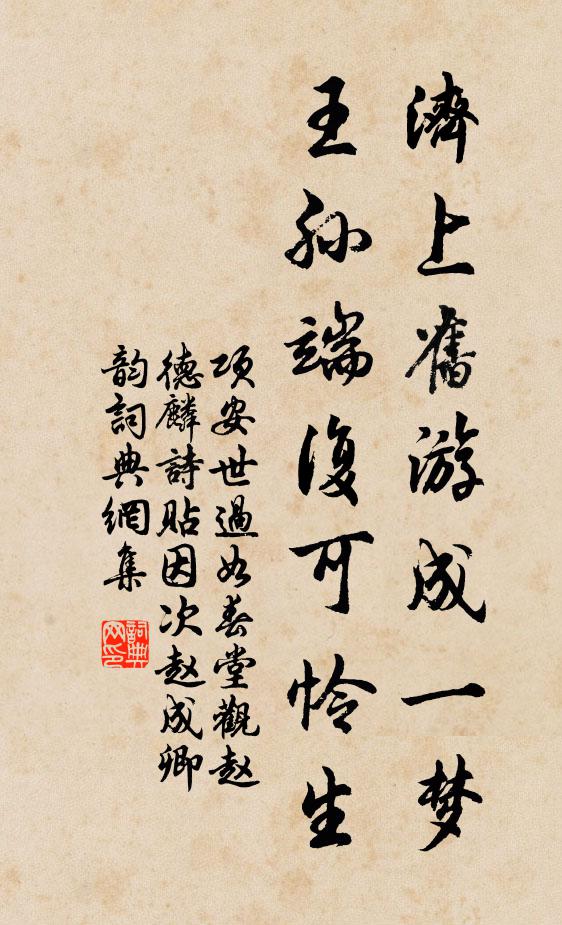 濟上舊游成一梦
王孙端復可怜生
项安世過如春堂觀赵
德麟詩貼因次赵成卿
韵詞典網集
詞典网印